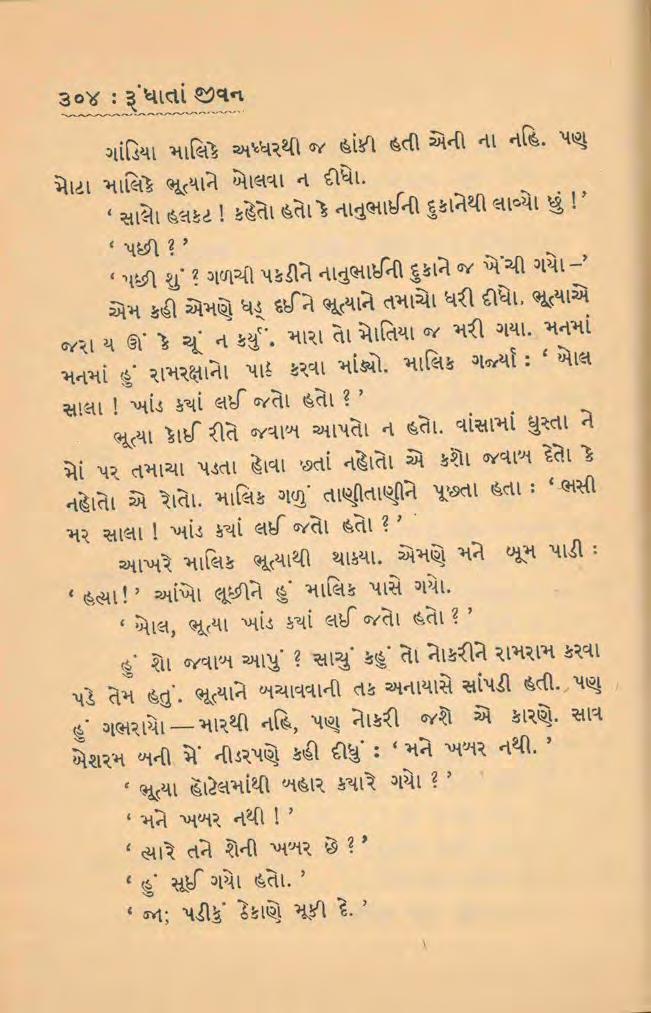 ૩૦૪ : રૂંધાતાં જીવન
ગાંડિયા માલિકે અધ્ધરથી જ હાંકી હતી એની ના નહિ. પણ
મોટા માલિકે ભૂત્યાને બોલવા ન દીધો.
‘ સાલો હલકટ ! કહેતો હતો કે નાનુભાઈની દુકાનેથી લાવ્યો છું !’
‘ પછી ? ’
‘ પછી શું ? ગળચી પકડીને નાનુભાઈની દુકાને જ ખેંચી ગયો –’
એમ કહી એમણે ધડ્ દઈને ભૂત્યાને તમાચો ધરી દીધો. ભૂત્યાએ
જરા ય ઊં કે ચૂં ન કર્યું. મારા તો મોતિયા જ મરી ગયા. મનમાં
મનમાં હું રામરક્ષાનો પાઠ કરવા માંડ્યો. માલિક ગર્જ્યા : ‘ બોલ
સાલા ! ખાંડ ક્યાં લઈ જતો હતો ? ’
ભૂત્યા કોઈ રીતે જવાબ આપતો ન હતો. વાંસામાં ઘુસ્તા ને
મોં પર તમાચા પડતા હોવા છતાં નહોતો એ કશો જવાબ દેતો કે
નહોતો એ રોતો. માલિક ગળું તાણીતાણીને પૂછતા હતા : ‘ ભસી
મર સાલા ! ખાંડ ક્યાં લઈ જતો હતો ? ’
આખરે માલિક ભૂત્યાથી થાક્યા. એમણે મને બૂમ પાડી :
‘ હત્યા! ’ આંખો લૂછીને હું માલિક પાસે ગયો.
‘ બોલ, ભૂત્યા ખાંડ ક્યાં લઈ જતો હતો ? ’
હું શો જવાબ આપું ? સાચું કહું તો નોકરીને રામરામ કરવા
પડે તેમ હતું. ભૂત્યાને બચાવવાની તક અનાયાસે સાંપડી હતી. પણ
હું ગભરાયો — મારથી નહિ, પણ નોકરી જશે એ કારણે. સાવ
બેશરમ બની મેં નીડરપણે કહી દીધું : ‘ મને ખબર નથી. ’
‘ ભૂત્યા હોટેલમાંથી બહાર ક્યારે ગયો ? ’
‘ મને ખબર નથી ! ’
‘ ત્યારે તને શેની ખબર છે ? ’
‘ હું સૂઈ ગયો હતો. ’
‘ જા; પડીકું ઠેકાણે મૂકી દે. ’